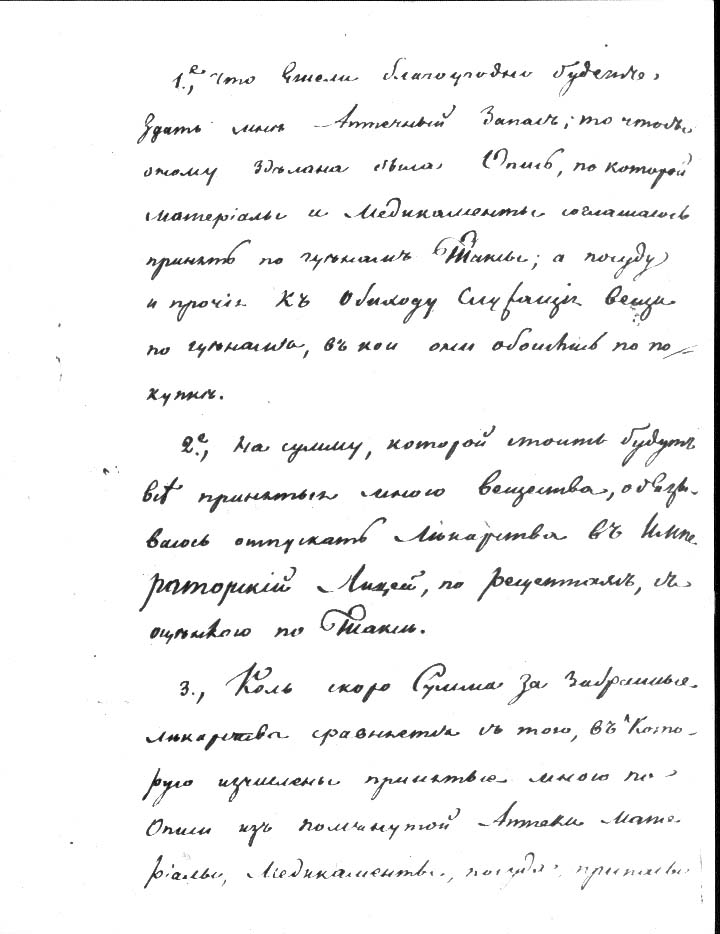 1е, что Ежели благоугодно будетъ
здать мнѣ Аптечный Запасъ; то чтобъ
оному здѣлана была Опись, по которой
матеріалы и Медикаменты соглашаюсь
принять по цѣнамъ Таксы; а посуду
и прочія къ Обиходу Служащія вещи
по цѣнамъ, въ кои они обошлись по по
купкѣ.
2е, На сумму, которой стоить будутъ
всѣ принятыя мною вещества, обязы-
ваюсь отпускать Лѣкарства въ Импе
раторскій Лицей, по рецептамъ, съ
оцѣнкою по Таксѣ.
3., Коль скоро Сумма за Забранные
лѣкарства сравняется съ тою, въ Кото-
рую изчислены принятые мною по
Описи изъ помянутой Аптеки мате
ріалы, Медикаменты, посуда, припасы